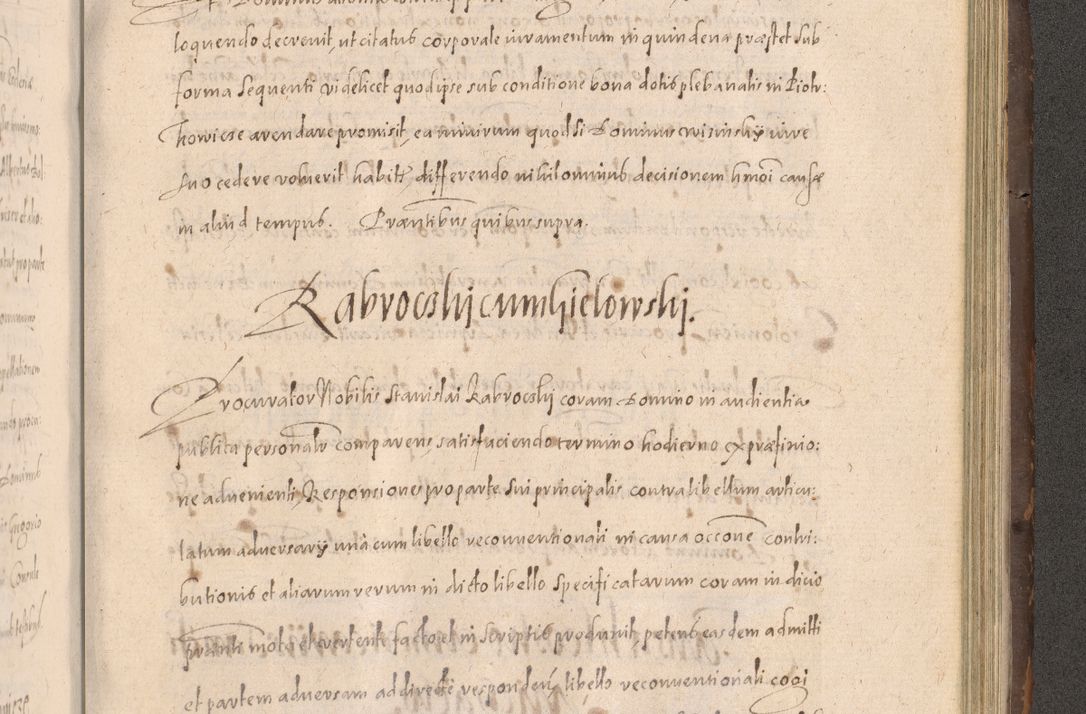 loquendo decrevit, ut citatus corporale iuramentum in quindena præstet sub
forma sequenti videlicet quod ipse sub conditione bona dotis plebanalis in Piotr:
kowicze arendare promisit, ea nimirum quod si Dominus wisinskÿ iure
suo cedere voluerit habitÿ differendo nihilominus decisionem hmoi causæ
in aliud tempus. Præntibus quibus supra.
Rabrocskij cum Gielowskij.
Procurator Nobilis Stanislai Rabrocskij coram Domino in audientia
publica personalr comparens satisfaciendo termino hodierno ex præfixio:
ne advenienti Responsiones pro parte sui principalis contra libellum articu:
latum adversarÿ unà cum libello reconventionali in causa occone contri:
butionis et aliarum rerum in dicto libello specificatarum coram iudicio
prænti motæ et vertenti facto et in scriptis produxit, petens easdem admitti
et partem adversam ad directe respondenÿ libello reconventionali cogi